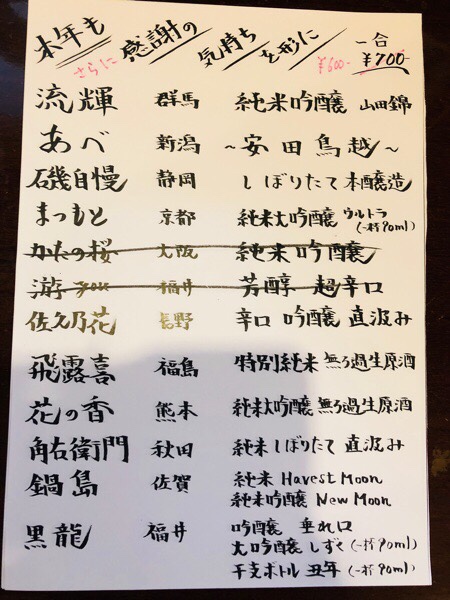 本年も 感謝の 気持ちを形に 一合 ¥700
さらに ¥600-
流輝 群馬 純米吟醸 山田錦
あべ 新潟 ~安田鳥越~
磯自慢 静岡 しぼりたて 本醸造
まつもと 京都 純米大吟醸 ウルトラ (一杯90ml)
かたの桜 大阪 純米吟醸
游 福井 芳醇 超辛口
佐久乃花 長野 辛口 吟醸 直汲み
飛露喜 福島 特別純米 無ろ過生原酒
花の香 熊本 純米大吟醸 無ろ過生原酒
角右衛門 秋田 純米しぼりたて 直汲み
鍋島 佐賀 純米 Havest Moon
純米吟醸 New Moon
黒龍 福井 吟醸 垂れ口
大吟醸 しずく (一杯90ml)
干支ボトル 丑年 (一杯90ml)